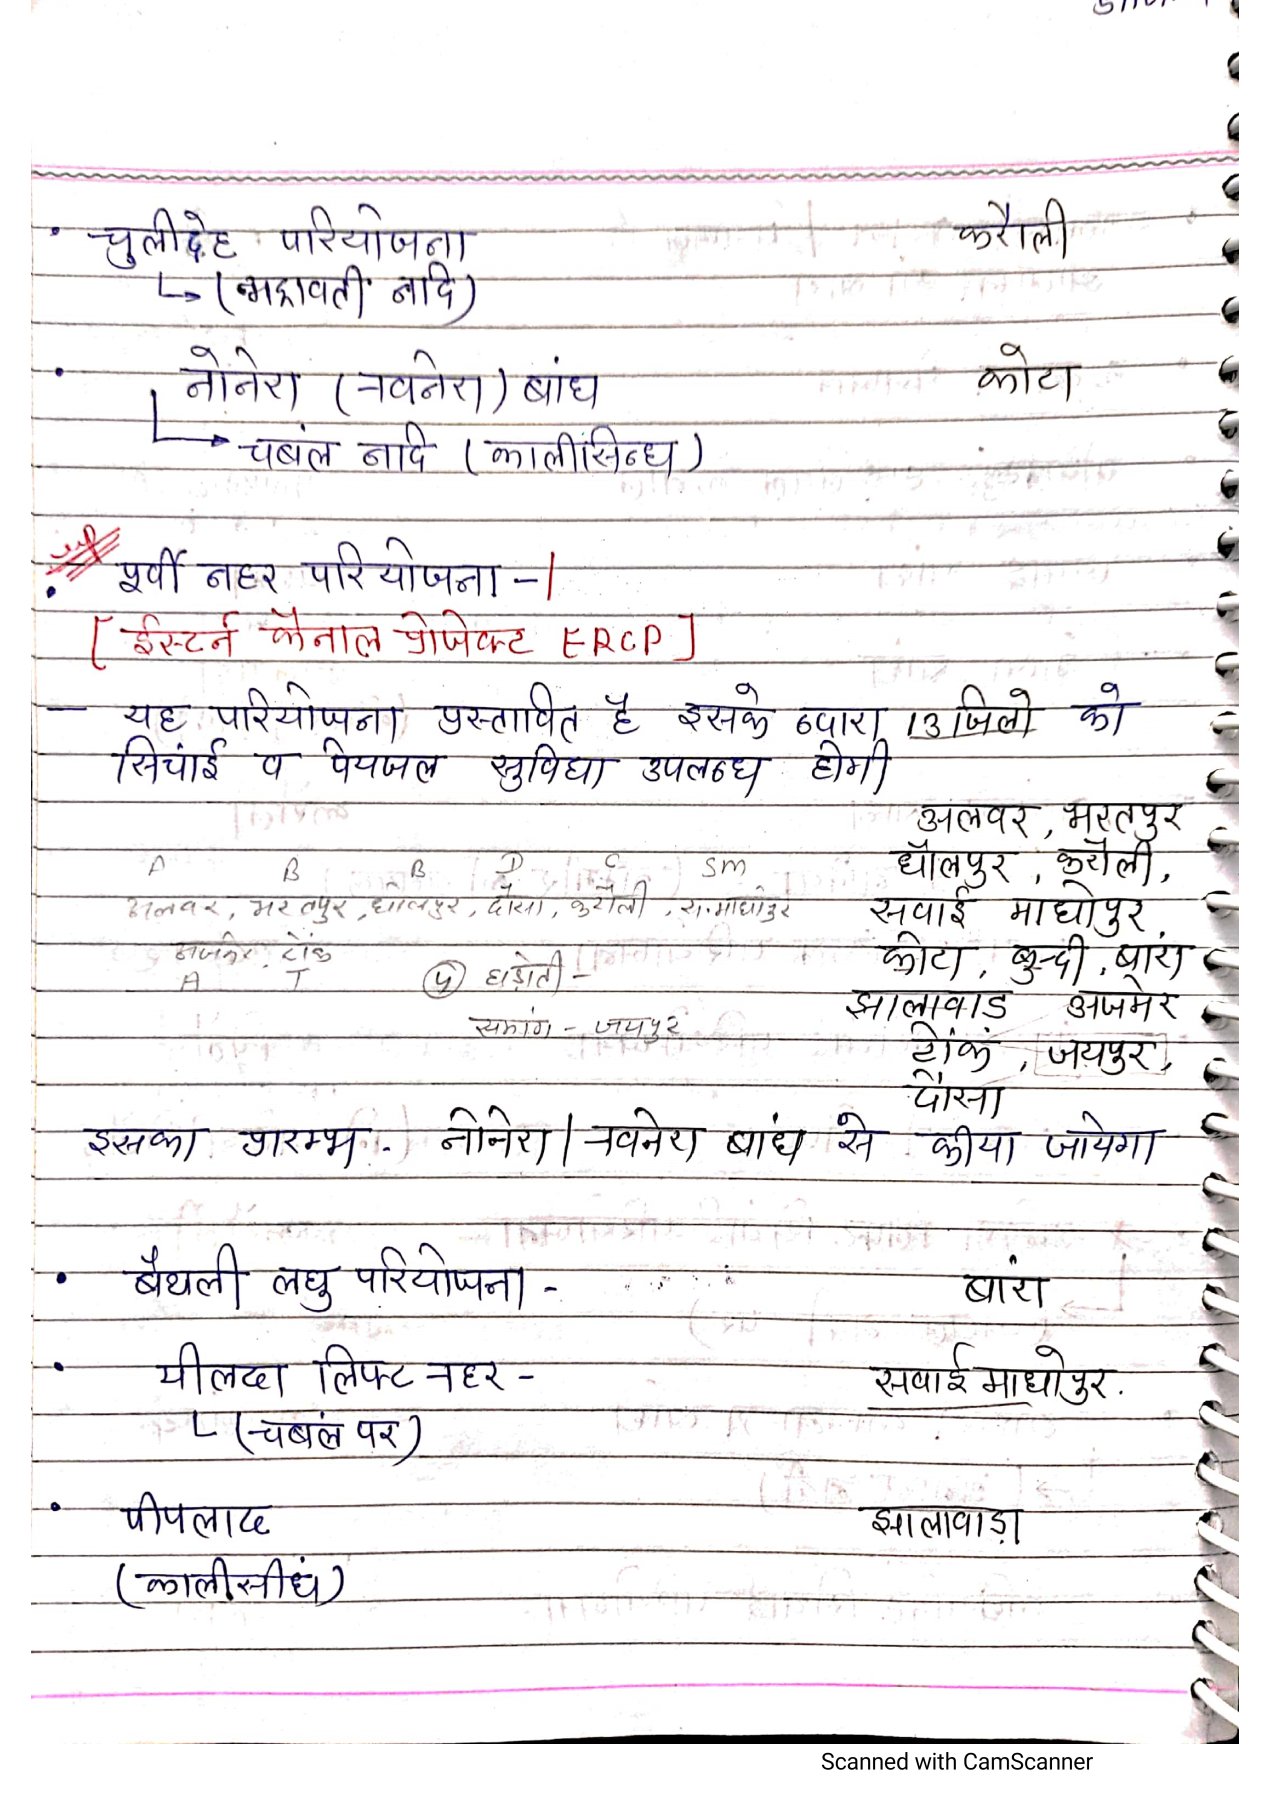 चुलीदेह परियोजना करौली
↳ (भद्रावती नदि)
नोनेरा (नवनेरा) बांध कोटा
↳ चबंल नदि (कालीसिन्ध)
पूर्वी नहर परियोजना -
[ईस्टर्न कैनाल प्रोजेक्ट ERCP]
— यह परियोजना प्रस्तावित है इसके द्वारा 13 जिलो को
सिचांई व पेयजल सुविधा उपलब्ध होगी
अलवर, भरतपुर
धौलपुर, करौली,
सवाई माधोपुर
कोटा, बुन्दी, बांरा
झालावाड अजमेर
टोंकं, जयपुर,
दौसा
A B B D C SM
अलवर, भरतपुर, धोलपुर, दौसा, करौली, स.माधोपुर
अजमेर, टोंक
A T
④ हाड़ोती -
संभाग - जयपुर
इसका प्रारम्भ - नोनेरा/नवनेरा बांध से कीया जायेगा
बैथली लघु परियोजना - बांरा
पीलदा लिफ्ट नहर - सवाई माधोपुर.
↳ (चबंल पर)
पीपलाद झालावाड़ा
(कालीसीधं)
Scanned with CamScanner